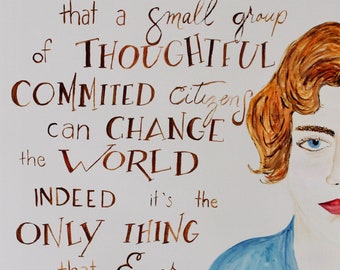 that a small group
of THOUGHTFUL
COMMITED citizens
can CHANGE
the WORLD
INDEED it's the
ONLY THING
that